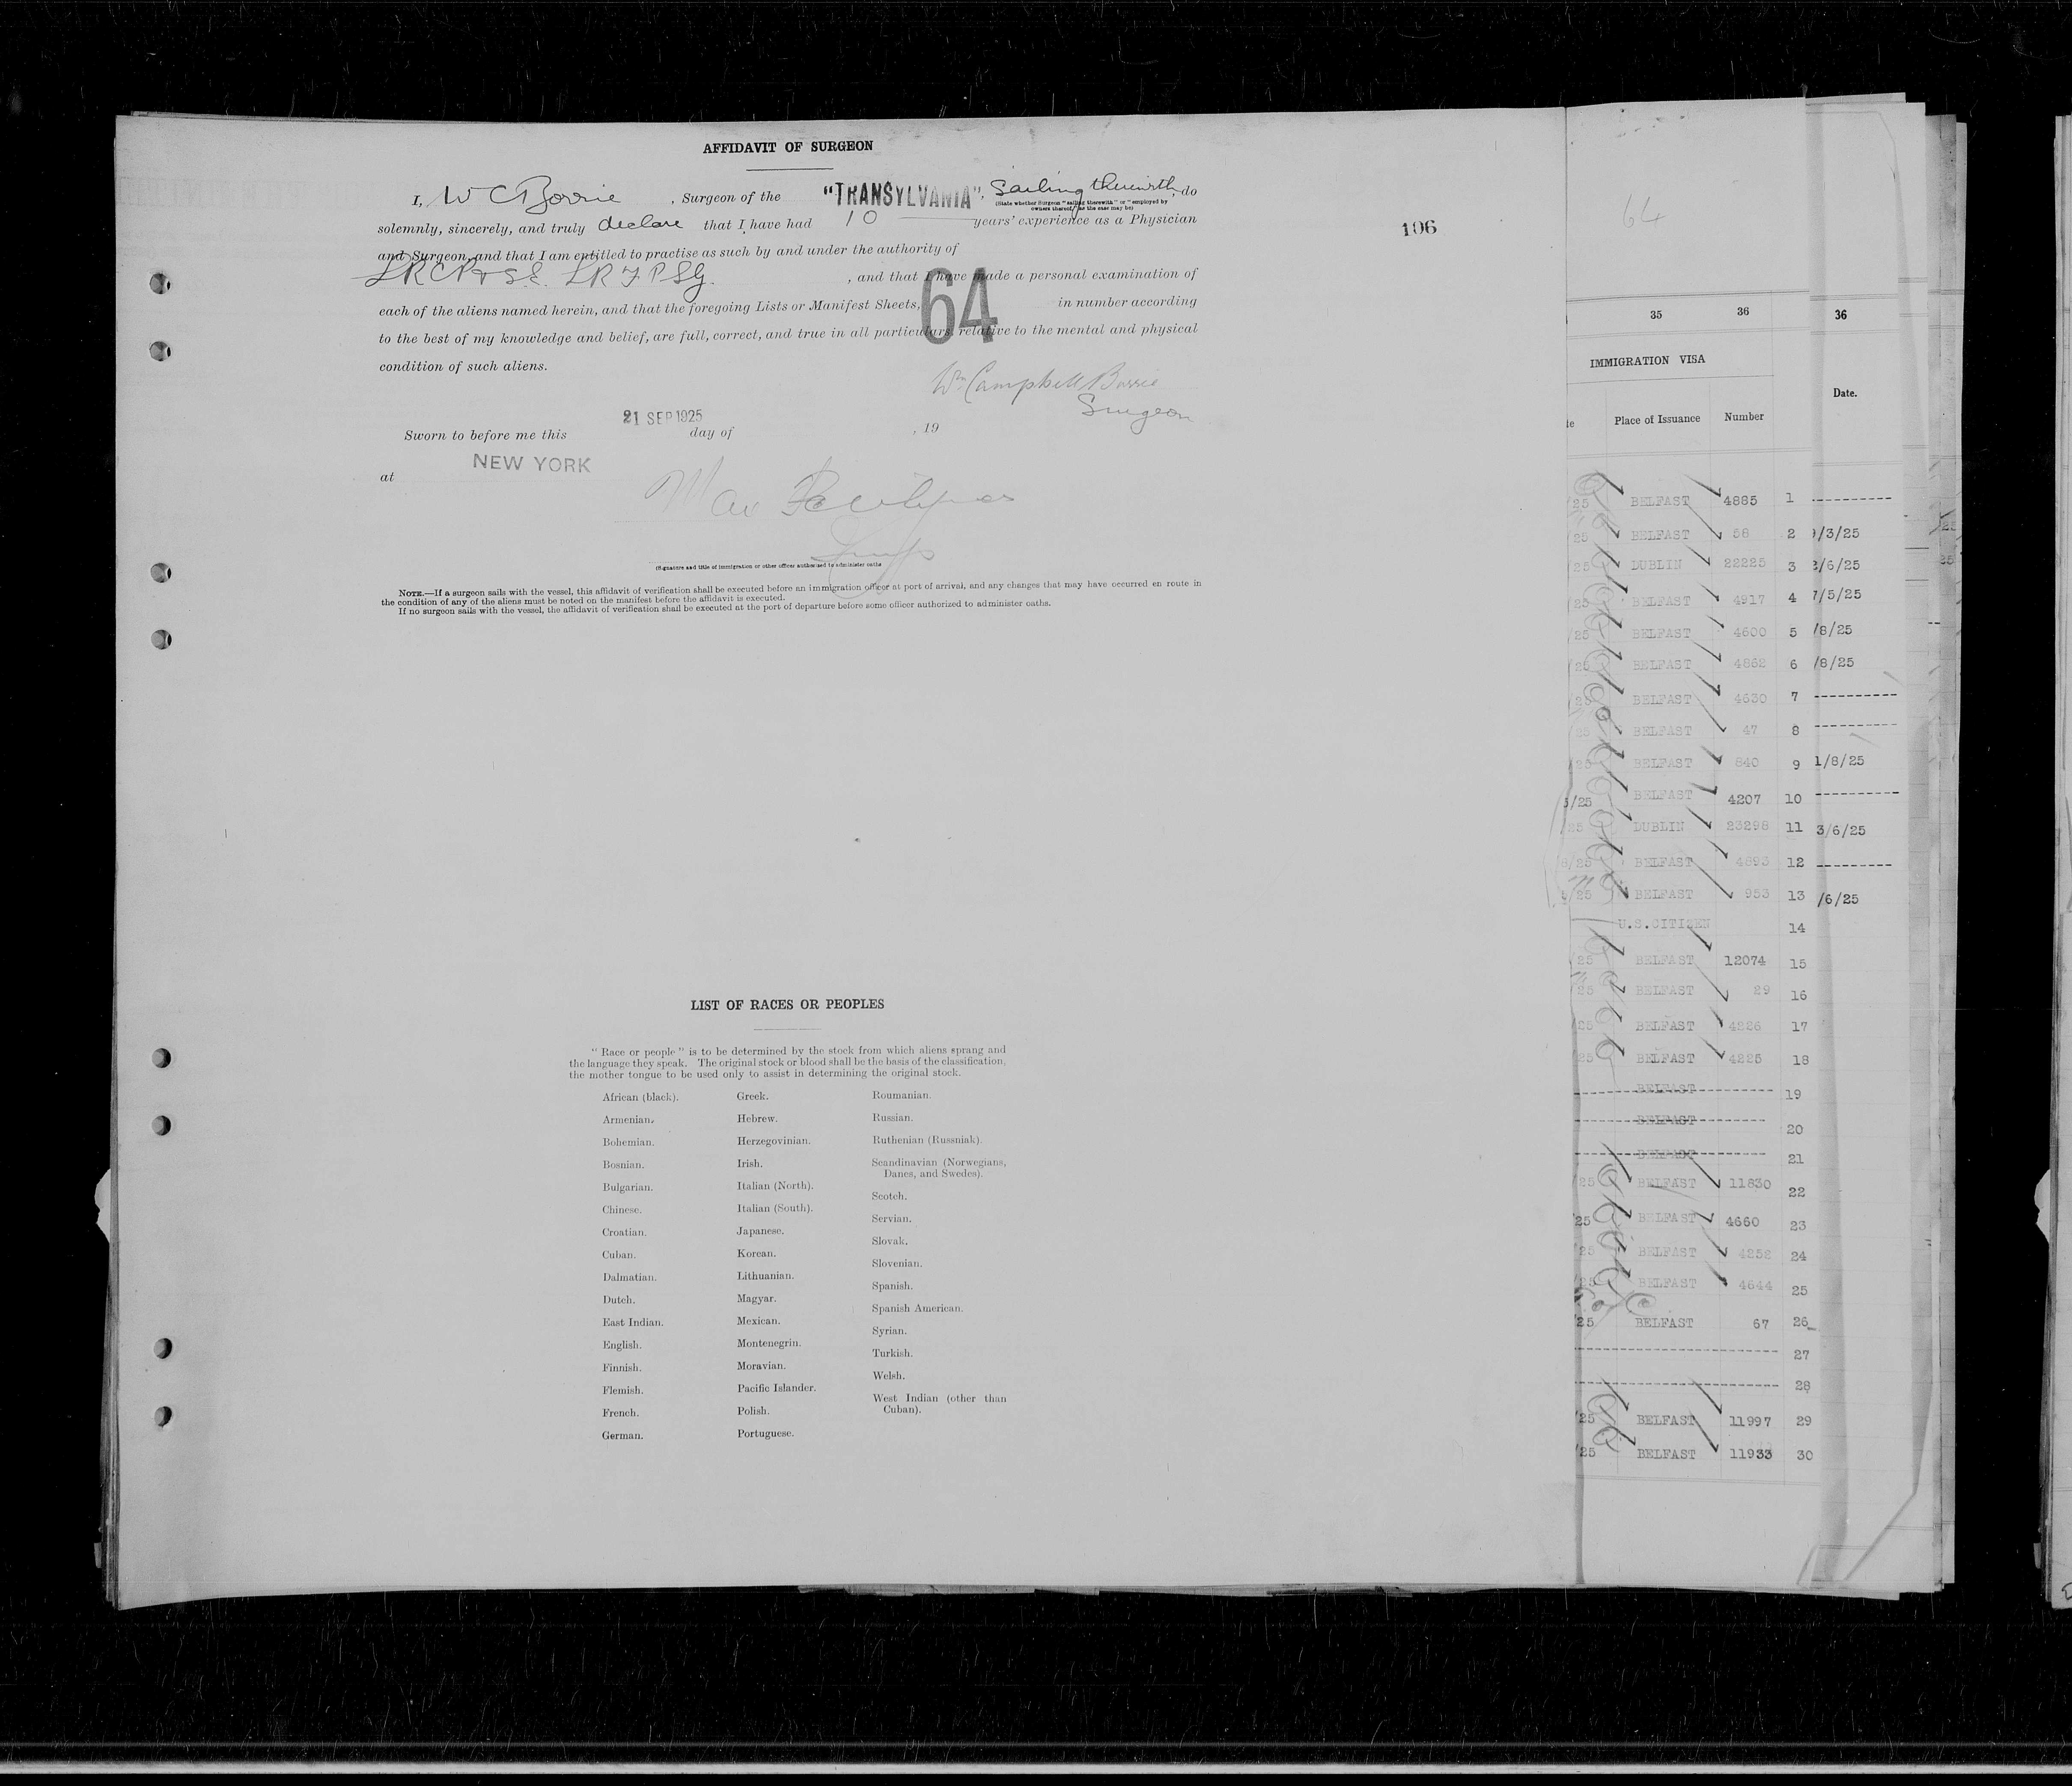 AFFIDAVIT OF SURGEON
I, W C Borrie, Surgeon of the "TRANSYLVANIA", Sailing therewith, do
(State whether Surgeon "sailing therewith" or "employed by
owners thereof," as the case may be)
solemnly, sincerely, and truly declare that I have had 10 years' experience as a Physician
and Surgeon, and that I am entitled to practise as such by and under the authority of
LRCP & S.E. LRFPSG. , and that I have made a personal examination of
each of the aliens named herein, and that the foregoing Lists or Manifest Sheets, 64 in number according
to the best of my knowledge and belief, are full, correct, and true in all particulars relative to the mental and physical
condition of such aliens.
Wm Campbell Borrie
Surgeon
Sworn to before me this 21 SEP 1925 day of , 19
at NEW YORK
(Signature and title of immigration or other officer authorised to administer oaths
NOTE.—If a surgeon sails with the vessel, this affidavit of verification shall be executed before an immigration officer at port of arrival, and any changes that may have occurred en route in
the condition of any of the aliens must be noted on the manifest before the affidavit is executed.
If no surgeon sails with the vessel, the affidavit of verification shall be executed at the port of departure before some officer authorized to administer oaths.
106
LIST OF RACES OR PEOPLES
"Race or people" is to be determined by the stock from which aliens sprang and
the language they speak. The original stock or blood shall be the basis of the classification,
the mother tongue to be used only to assist in determining the original stock.
African (black).
Armenian.
Bohemian.
Bosnian.
Bulgarian.
Chinese.
Croatian.
Cuban.
Dalmatian.
Dutch.
East Indian.
English.
Finnish.
Flemish.
French.
German.
Greek.
Hebrew.
Herzegovinian.
Irish.
Italian (North).
Italian (South).
Japanese.
Korean.
Lithuanian.
Magyar.
Mexican.
Montenegrin.
Moravian.
Pacific Islander.
Polish.
Portuguese.
Roumanian.
Russian.
Ruthenian (Russniak).
Scandinavian (Norwegians,
Danes, and Swedes).
Scotch.
Servian.
Slovak.
Slovenian.
Spanish.
Spanish American.
Syrian.
Turkish.
Welsh.
West Indian (other than
Cuban).
64
35 36 36
IMMIGRATION VISA
Date.
te Place of Issuance Number
/25 BELFAST 4885 1
/25 BELFAST 58 2 9/3/25
/25 DUBLIN 22225 3 2/6/25
/25 BELFAST 4917 4 7/5/25
/25 BELFAST 4600 5 /8/25
/25 BELFAST 4862 6 /8/25
/25 BELFAST 4630 7
/25 BELFAST 47 8
/25 BELFAST 840 9 1/8/25
5/25 BELFAST 4207 10
/25 DUBLIN 23298 11 3/6/25
8/25 BELFAST 4893 12
/25 BELFAST 953 13 /6/25
U.S.CITIZEN 14
/25 BELFAST 12074 15
/25 BELFAST 29 16
/25 BELFAST 4226 17
/25 BELFAST 4225 18
BELFAST 19
BELFAST 20
BELFAST 21
/25 BELFAST 11830 22
/25 BELFAST 4660 23
/25 BELFAST 4252 24
/25 BELFAST 4644 25
/25 BELFAST 67 26
27
28
/25 BELFAST 11997 29
/25 BELFAST 11933 30